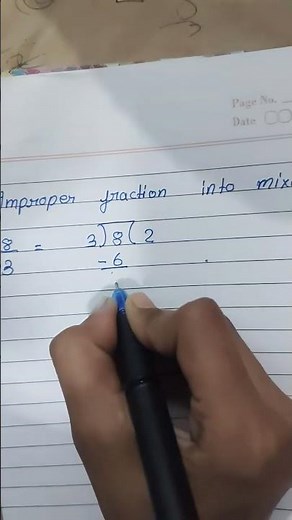 Page No.
Date
Improper fraction into mix
8/3 = 3)8(2
-6